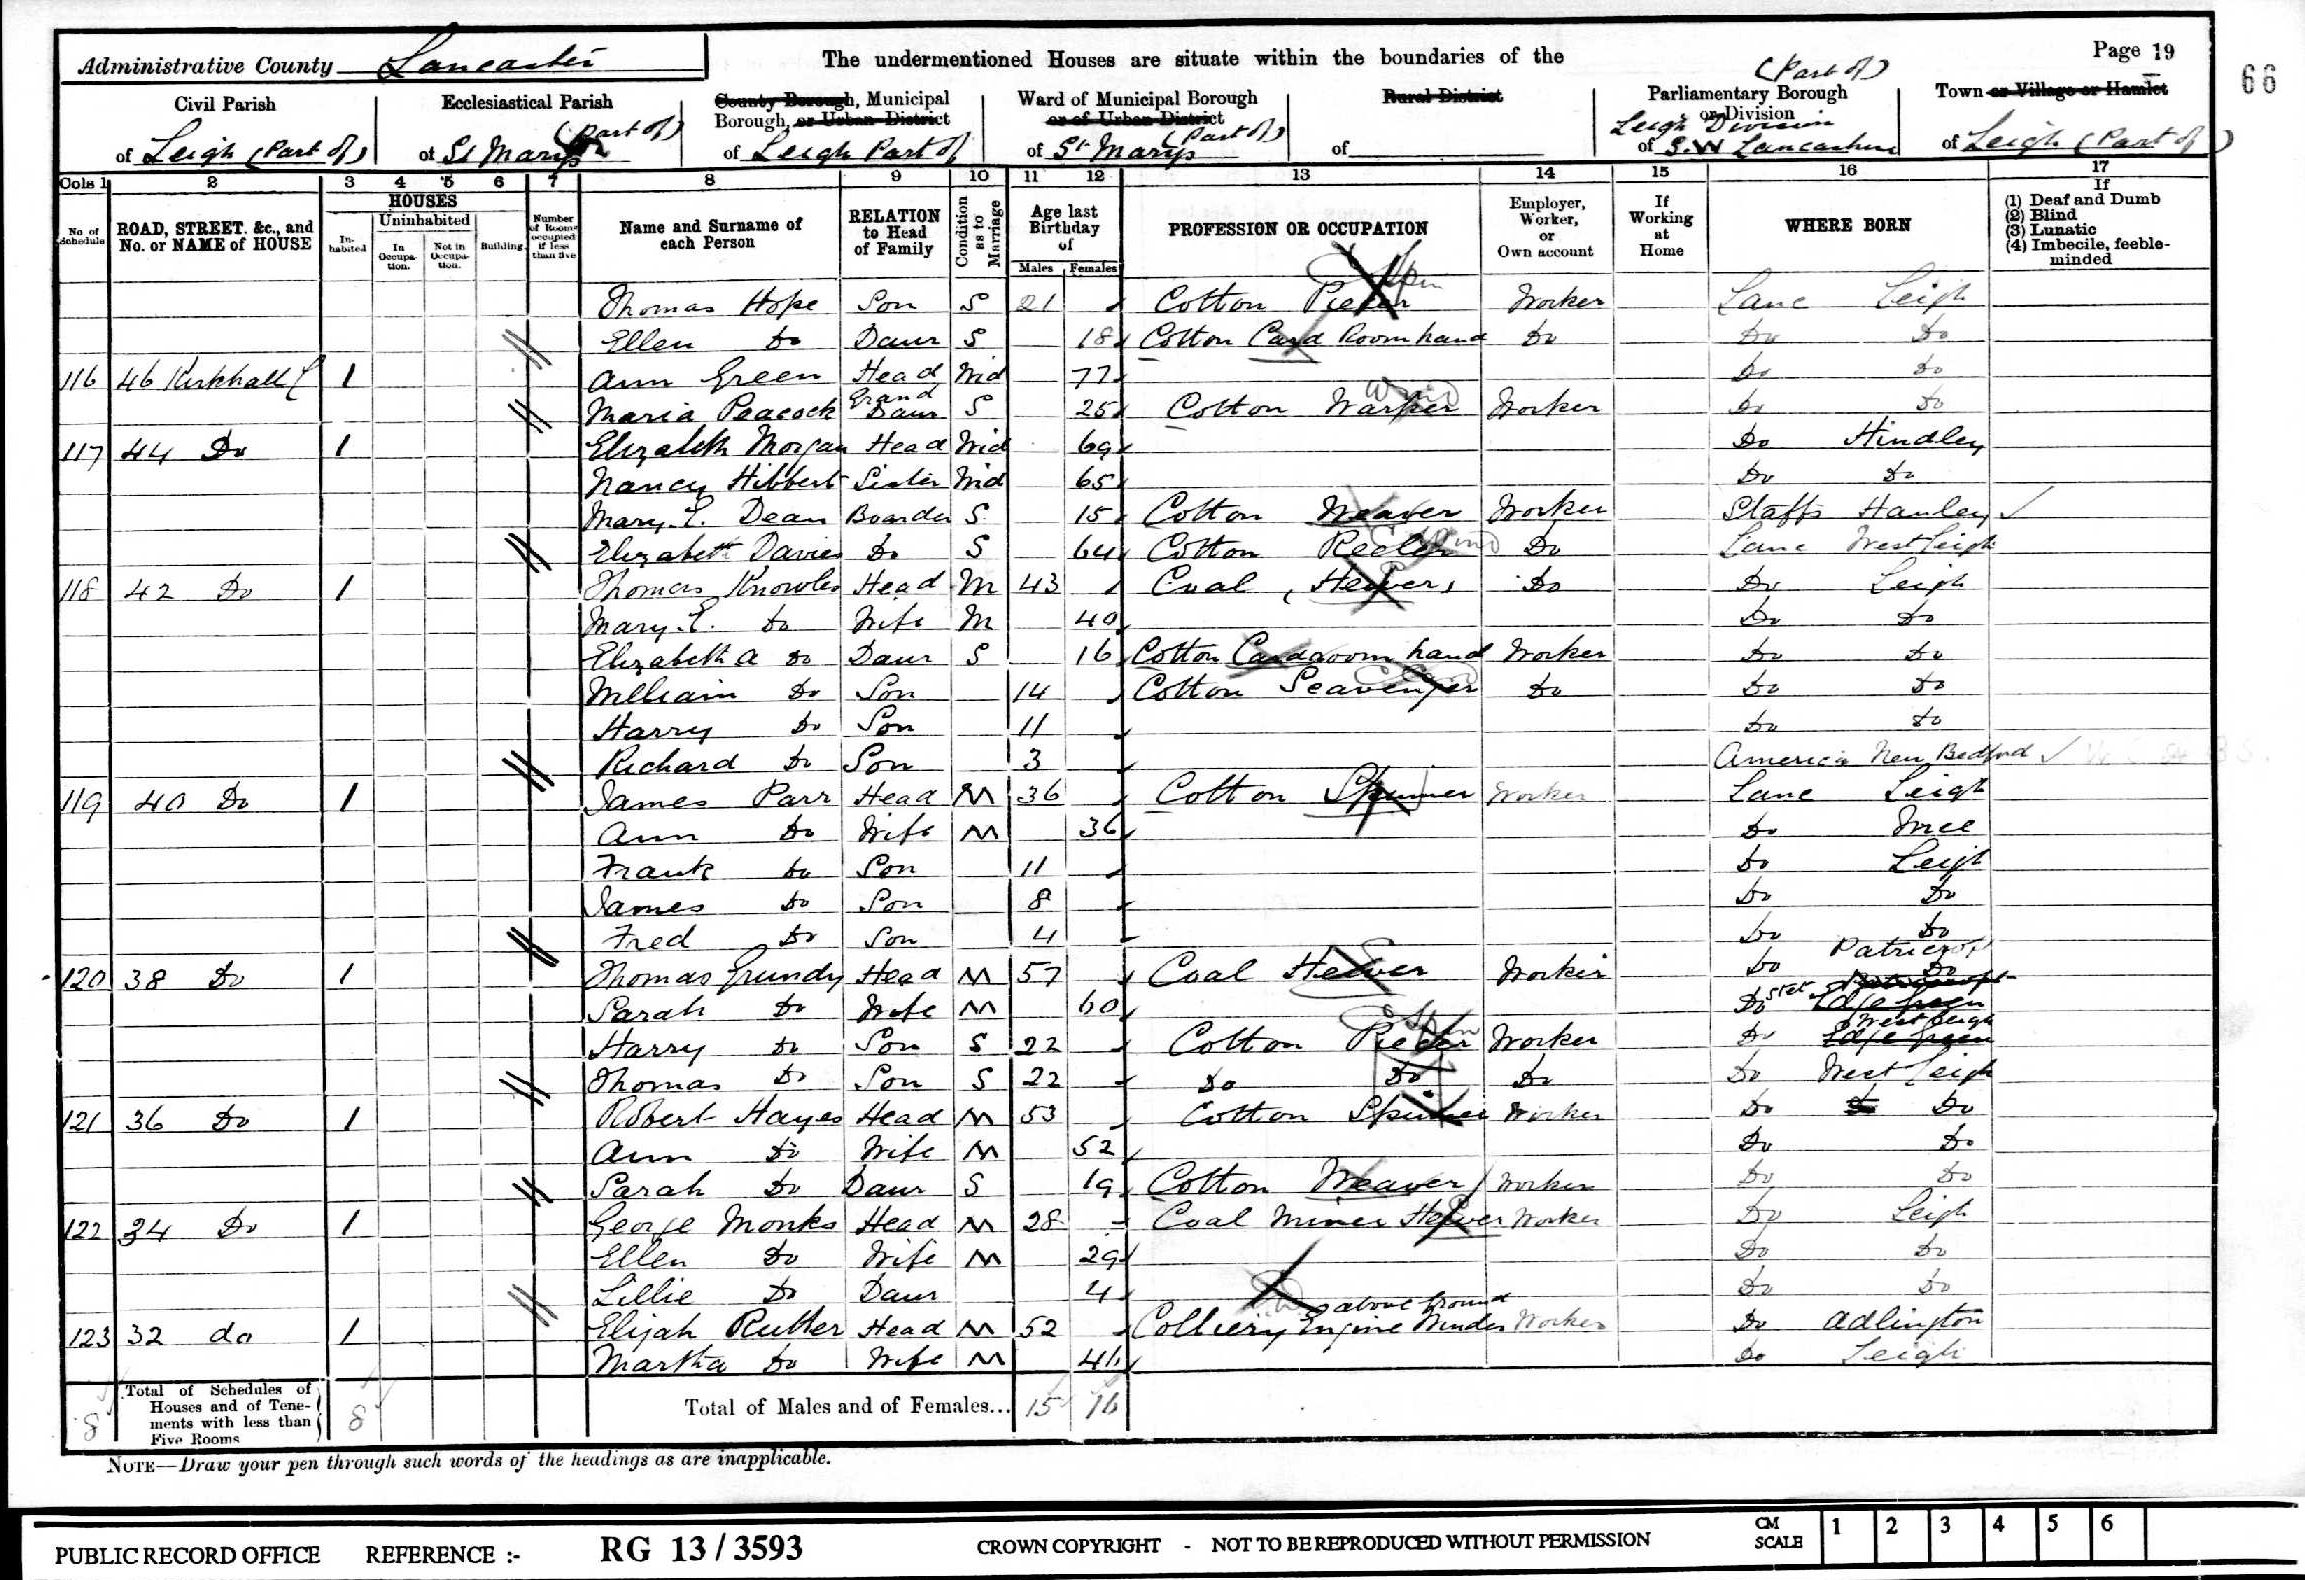 Administrative County Lancaster
The undermentioned Houses are situate within the boundaries of the
Page 19
66
Civil Parish of Leigh (Part of)
Ecclesiastical Parish of St Marys (Part of)
County Borough, Municipal Borough, or Urban District of Leigh Part of
Ward of Municipal Borough or of Urban District of St Marys (Part of)
Rural District of
(Part of) Parliamentary Borough or Division of Leigh Division S.W Lancashire
Town or Village or Hamlet of Leigh (Part of)
Cols 1 2 3 4 5 6 7 8 9 10 11 12 13 14 15 16 17
No. of Schedule
ROAD, STREET, &c., and No. or NAME of HOUSE
HOUSES
Inhabited
Uninhabited
In Occupation.
Not in Occupation.
Building.
Number of Rooms occupied if less than five
Name and Surname of each Person
RELATION to Head of Family
Condition as to Marriage
Age last Birthday of
Males Females
PROFESSION OR OCCUPATION
Employer, Worker, or Own account
If Working at Home
WHERE BORN
If
(1) Deaf and Dumb
(2) Blind
(3) Lunatic
(4) Imbecile, feeble-minded
Thomas Hope Son S 21 Cotton Piecer Worker Lanc Leigh
Ellen Do Daur S 18 Cotton Card Room hand Do Do Do
116 46 Kirkhall L 1 Ann Green Head Wid 77 Do Do
Maria Peacock Grand Daur S 25 Cotton Warper Worker Do Do
117 44 Do 1 Elizabeth Morgan Head Wid 69 Do Hindley
Nancy Hibbert Sister Wid 65 Do Do
Mary E. Dean Boarder S 15 Cotton Weaver Worker Staffs Hanley
Elizabeth Davies Do S 64 Cotton Reeler Do Lanc West Leigh
118 42 Do 1 Thomas Knowles Head M 43 Coal Hewer Do Do Leigh
Mary E. Do Wife M 40 Do Do
Elizabeth A Do Daur S 16 Cotton Cardroom hand Worker Do Do
William Do Son 14 Cotton Scavenger Do Do Do
Harry Do Son 11 Do Do
Richard Do Son 3 America New Bedford
119 40 Do 1 James Parr Head M 36 Cotton Spinner Worker Lanc Leigh
Ann Do Wife M 36 Do
Frank Do Son 11 Do Leigh
James Do Son 8 Do Do
Fred Do Son 4 Do Do
120 38 Do 1 Thomas Grundy Head M 57 Coal Hewer Worker Do Patricroft Do
Sarah Do Wife M 60 Do stet Edge Green
Harry Do Son S 22 Cotton Piecer Worker Do West Leigh Edge Green
Thomas Do Son S 22 Do Do Do Do West Leigh
121 36 Do 1 Robert Hayes Head M 53 Cotton Spinner Worker Do Do Do
Ann Do Wife M 52 Do Do
Sarah Do Daur S 19 Cotton Weaver Worker Do Do
122 34 Do 1 George Monks Head M 28 Coal Miner Hewer Worker Do Leigh
Ellen Do Wife M 29 Do Do
Lillie Do Daur 4 Do Do
123 32 do 1 Elijah Rutter Head M 52 Colliery Engine Winder above Ground Worker Do Adlington
Martha Do Wife M 46 Do Leigh
8 Total of Schedules of Houses and of Tenements with less than Five Rooms 8 Total of Males and of Females... 15 16
NOTE—Draw your pen through such words of the headings as are inapplicable.
PUBLIC RECORD OFFICE REFERENCE :- RG 13 / 3593 CROWN COPYRIGHT - NOT TO BE REPRODUCED WITHOUT PERMISSION
CM SCALE 1 2 3 4 5 6